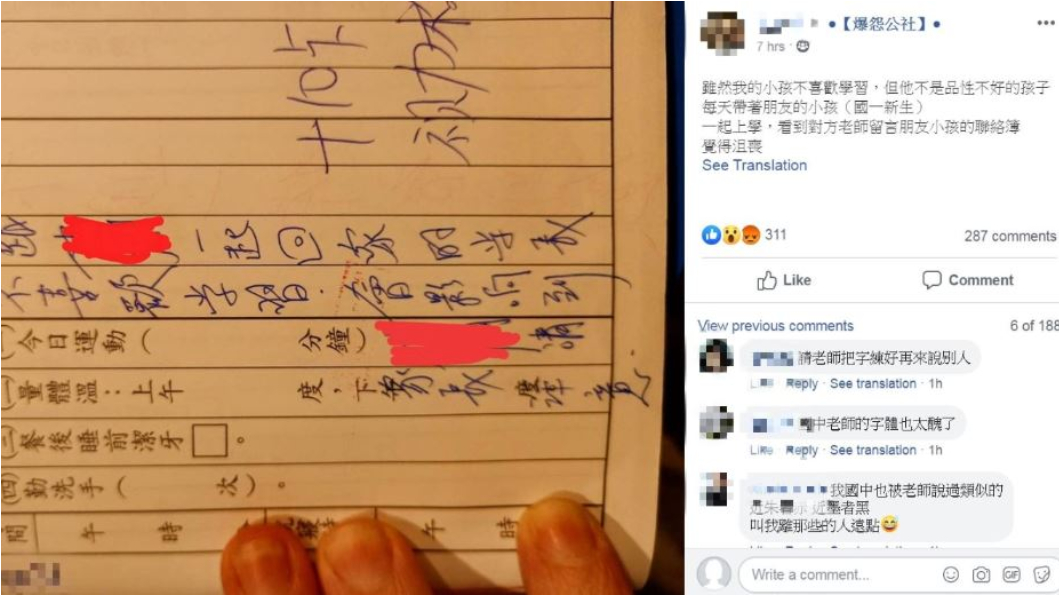 一起回家的學長
不喜歡學習.會影響到
今日運動( 分鐘) 請
(一)量體溫：上午 度，下 家長 度 注意.
(二)餐後睡前潔牙□。
(四)勤洗手( 次)。
間 午 時 午 時
•【爆怨公社】•
7 hrs
雖然我的小孩不喜歡學習，但他不是品性不好的孩子
每天帶著朋友的小孩（國一新生）
一起上學，看到對方老師留言朋友小孩的聯絡簿
覺得沮喪
See Translation
311
287 comments
Like Comment
View previous comments 6 of 188
請老師把字練好再來說別人
Reply · See translation · 1h
中老師的字體也太醜了
Like · Reply · See translation · 1h
我國中也被老師說過類似的
近朱者赤 近墨者黑
叫我離那些的人遠點😅
Write a comment...
GIF